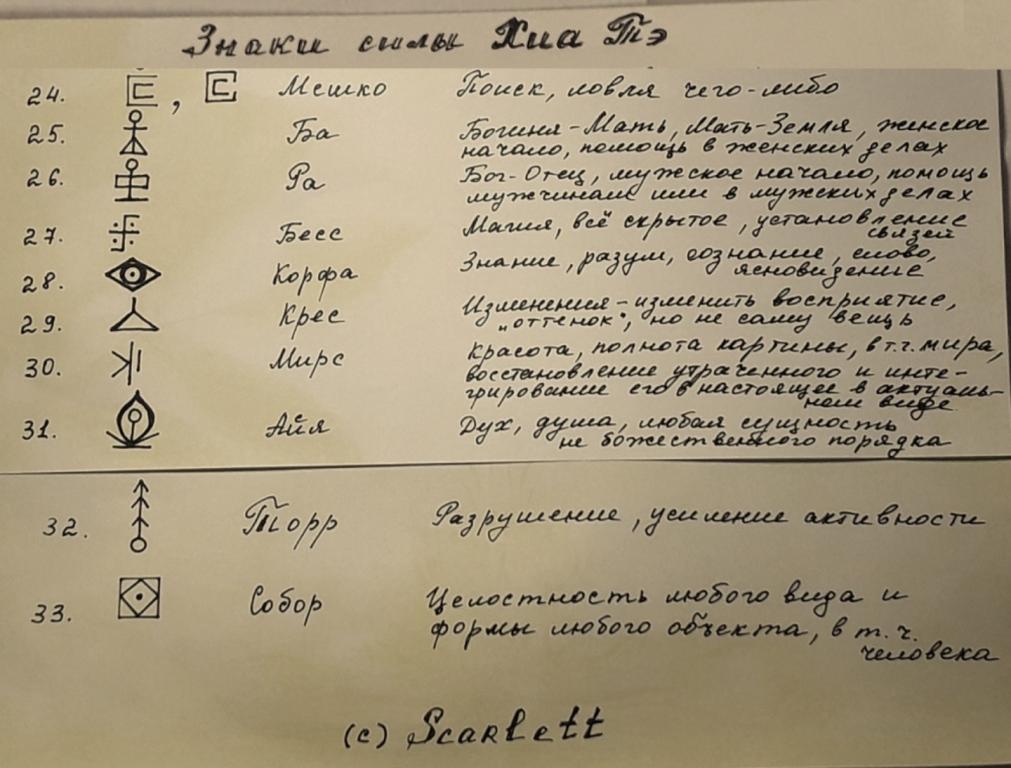 Знаки силы Хиа Тэ
24. , Мешко Поиск, ловля чего-либо
25. Ба Богиня-Мать, Мать-Земля, женское
начало, помощь в женских делах
26. Ра Бог-Отец, мужское начало, помощь
мужчинам или в мужских делах
27. Бесс Магия, всё скрытое, установление
связей
28. Корфа Знание, разум, сознание, слово,
ясновидение
29. Крес Изменения - изменить восприятие,
„оттенок“, но не саму вещь
30. Мирс Красота, полнота картины, в т.ч. мира,
восстановление утраченного и инте-
грирование его в настоящее в актуаль-
ном виде
31. Айя Дух, душа, любая сущность
не божественного порядка
32. Торр Разрушение, усиление активности
33. Собор Целостность любого вида и
формы любого объекта, в т.ч.
человека
(c) Scarlett